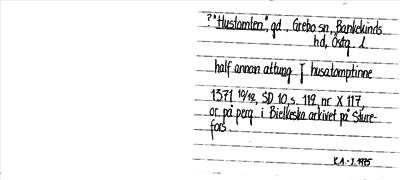 ? "Hustomten", gd., Grebo sn, Bankekinds
hd, Östg. l.
half annan attung J husatomptinne
1371 10/12, SD 10, s. 119, nr X 117,
or. på perg. i Bielkeska arkivet på Sture-
fors
K.A. - J. 1975